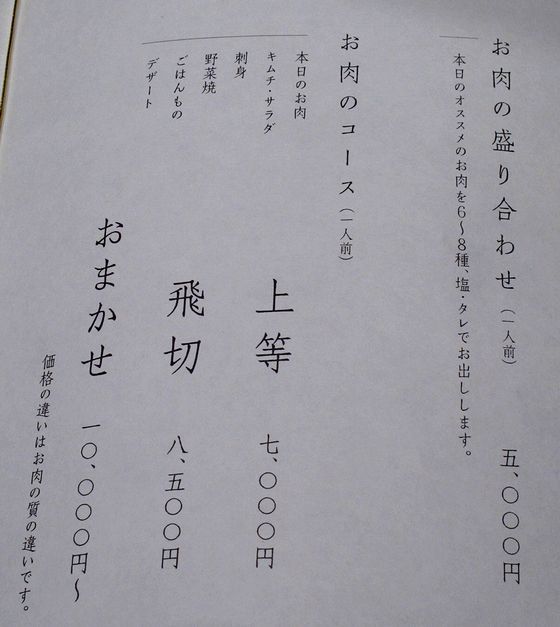 お肉の盛り合わせ（一人前） 五、〇〇〇円
本日のオススメのお肉を6〜8種、塩・タレでお出しします。
お肉のコース（一人前）
本日のお肉
キムチ・サラダ
刺身
野菜焼
ごはんもの
デザート
上等 七、〇〇〇円
飛切 八、五〇〇円
おまかせ 一〇、〇〇〇円〜
価格の違いはお肉の質の違いです。